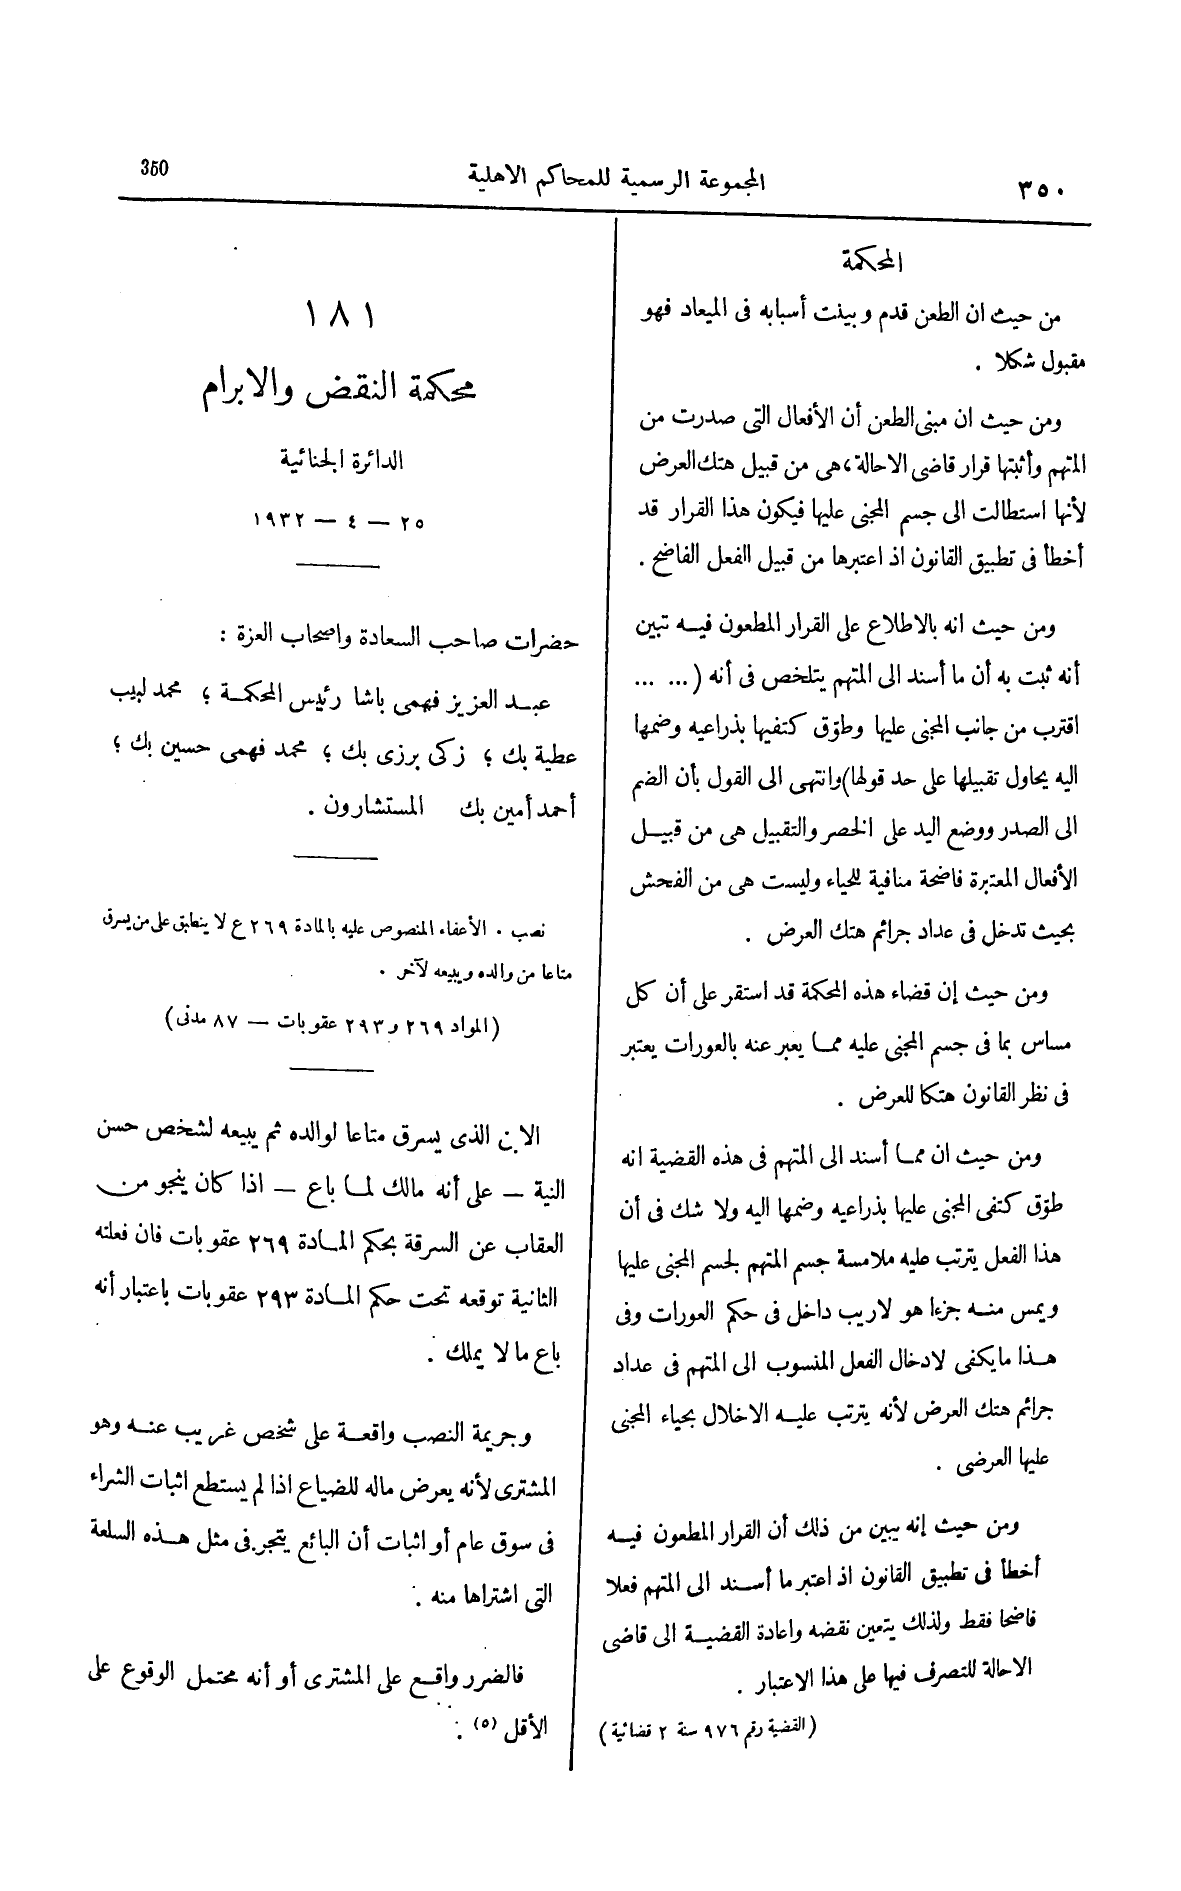 ٣٥٠
المجموعة الرسمية للمحاكم الاهلية
350
المحكمة
من حيث ان الطعن قدم وبينت أسبابه فى الميعاد فهو
مقبول شكلا .
ومن حيث ان مبنى الطعن أن الأفعال التى صدرت من
المتهم وأثبتها قرار قاضى الاحالة، هى من قبيل هتك العرض
لأنها استطالت الى جسم المجنى عليها فيكون هذا القرار قد
أخطأ فى تطبيق القانون اذ اعتبرها من قبيل الفعل الفاضح .
ومن حيث انه بالاطلاع على القرار المطعون فيه تبين
أنه ثبت به أن ما أسند الى المتهم يتلخص فى أنه (... ...
اقترب من جانب المجنى عليها وطوّق كتفيها بذراعيه وضمها
اليه يحاول تقبيلها على حد قولها) وانتهى الى القول بأن الضم
الى الصدر ووضع اليد على الخصر والتقبيل هى من قبيل
الأفعال المعتبرة فاضحة منافية للحياء وليست هى من الفحش
بحيث تدخل فى عداد جرائم هتك العرض .
ومن حيث إن قضاء هذه المحكمة قد استقر على أن كل
مساس بما فى جسم المجنى عليه مما يعبر عنه بالعورات يعتبر
فى نظر القانون هتكا للعرض .
ومن حيث ان مما أسند الى المتهم فى هذه القضية انه
طوّق كتفى المجنى عليها بذراعيه وضمها اليه ولا شك فى أن
هذا الفعل يترتب عليه ملامسة جسم المتهم لجسم المجنى عليها
ويمس منه جزءا هو لاريب داخل فى حكم العورات وفى
هذا مايكفى لادخال الفعل المنسوب الى المتهم فى عداد
جرائم هتك العرض لأنه يترتب عليه الاخلال بحياء المجنى
عليها العرضى .
ومن حيث إنه يبين من ذلك أن القرار المطعون فيه
أخطأ فى تطبيق القانون اذ اعتبر ما أسند الى المتهم فعلا
فاضحا فقط ولذلك يتعين نقضه واعادة القضية الى قاضى
الاحالة للتصرف فيها على هذا الاعتبار .
(القضية رقم ٩٧٦ سنة ٢ قضائية)
١٨١
محكمة النقض والابرام
الدائرة الجنائية
٢٥ — ٤ — ١٩٣٢
حضرات صاحب السعادة واصحاب العزة :
عبد العزيز فهمى باشا رئيس المحكمة ؛ محمد لبيب
عطية بك ؛ زكى برزى بك ؛ محمد فهمى حسين بك ؛
أحمد أمين بك المستشارون .
نصب . الأعفاء المنصوص عليه بالمادة ٢٦٩ ع لا ينطبق على من يسرق
متاعا من والده ويبيعه لآخر .
(المواد ٢٦٩ و ٢٩٣ عقوبات — ٨٧ مدنى)
الابن الذى يسرق متاعا لوالده ثم يبيعه لشخص حسن
النية — على أنه مالك لما باع — اذا كان ينجو من
العقاب عن السرقة بحكم المادة ٢٦٩ عقوبات فان فعلته
الثانية توقعه تحت حكم المادة ٢٩٣ عقوبات باعتبار أنه
باع ما لا يملك .
وجريمة النصب واقعة على شخص غريب عنه وهو
المشترى لأنه يعرض ماله للضياع اذا لم يستطع اثبات الشراء
فى سوق عام أو اثبات أن البائع يتجر فى مثل هذه السلعة
التى اشتراها منه .
فالضرر واقع على المشترى أو أنه محتمل الوقوع على
الأقل (٥) .